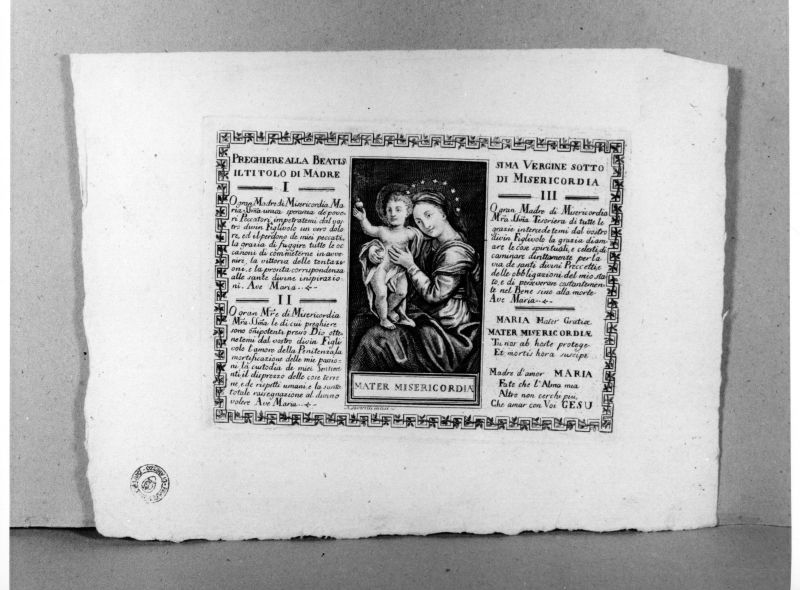 PREGHIERE ALLA BEATIS
IL TITOLO DI MADRE
I
O gran Madre di Misericordia Ma
ria Sñta unica speranza de pove
ri Peccatori impetratemi dal vos
tro divin Figlivolo un vero dolo
re, ed il perdono de miei peccati,
la grazia di fuggire tutte le oc
casioni di commetterne in avve
nire, la vittoria delle tentazi
oni, e la pronta corrispondenza
alle sante divine inspirazio
ni. Ave Maria
II
O gran Mre di Misericordia
Mria Sñta le di cui preghiere
sono oñipotenti presso Dio otte
netemi dal vostro divin Figli
volo l'amore della Penitenza, la
mortificazione delle mie passio
ni la custodia de miei Sentimen
ti, il disprezzo delle cose terre
ne, e de rispetti umani, e la santa
totale rassegnazione al divino
volere Ave Maria
MATER MISERICORDIÆ
SIMA VERGINE SOTTO
DI MISERICORDIA
III
O gran Madre di Misericordia
Mria Sñta Tesoriera di tutte le
grazie intercedetemi dal vostro
divin Figlivolo la grazia di am
are le cose spirituali, e celesti, di
caminare direttamente per la
via de santi divini Precetti, e
delle obbligazioni del mio sta
to, e di perseverare costantemen
te nel Bene sino alla morte
Ave Maria
MARIA Mater Gratiæ
MATER MISERICORDIÆ
Tu nos ab hoste protege
Et mortis hora suscipe
Madre d'amor MARIA
Fate che l'Alma mia
Altro non cerchi più,
Che amar con Voi GESU